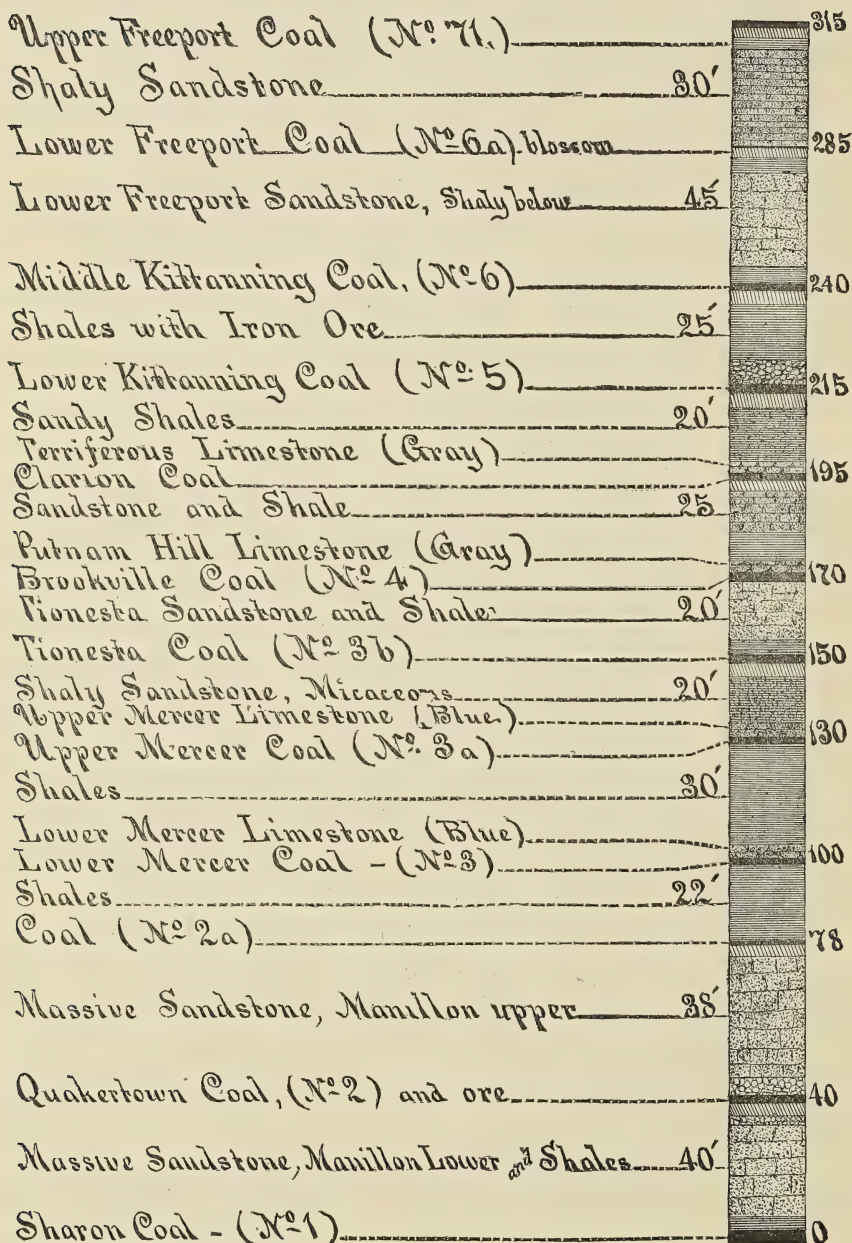 Upper Freeport Coal (No 71.) 315
Shaly Sandstone 30'
Lower Freeport Coal (No 6a) blossom 285
Lower Freeport Sandstone, Shaly below 45'
Middle Kittanning Coal, (No 6) 240
Shales with Iron Ore 25'
Lower Kittanning Coal (No 5) 215
Sandy Shales 20'
Ferriferous Limestone (Gray)
Clarion Coal 195
Sandstone and Shale 25
Putnam Hill Limestone (Gray)
Brookville Coal (No 4) 170
Tionesta Sandstone and Shale 20'
Tionesta Coal (No 3b) 150
Shaly Sandstone, Micaceous 20'
Upper Mercer Limestone (Blue)
Upper Mercer Coal (No 3a) 130
Shales 30'
Lower Mercer Limestone (Blue)
Lower Mercer Coal - (No 3) 100
Shales 22'
Coal (No 2a) 78
Massive Sandstone, Manillon upper 38'
Quakertown Coal, (No 2) and ore 40
Massive Sandstone, Manillon Lower and Shales 40'
Sharon Coal - (No 1) 0